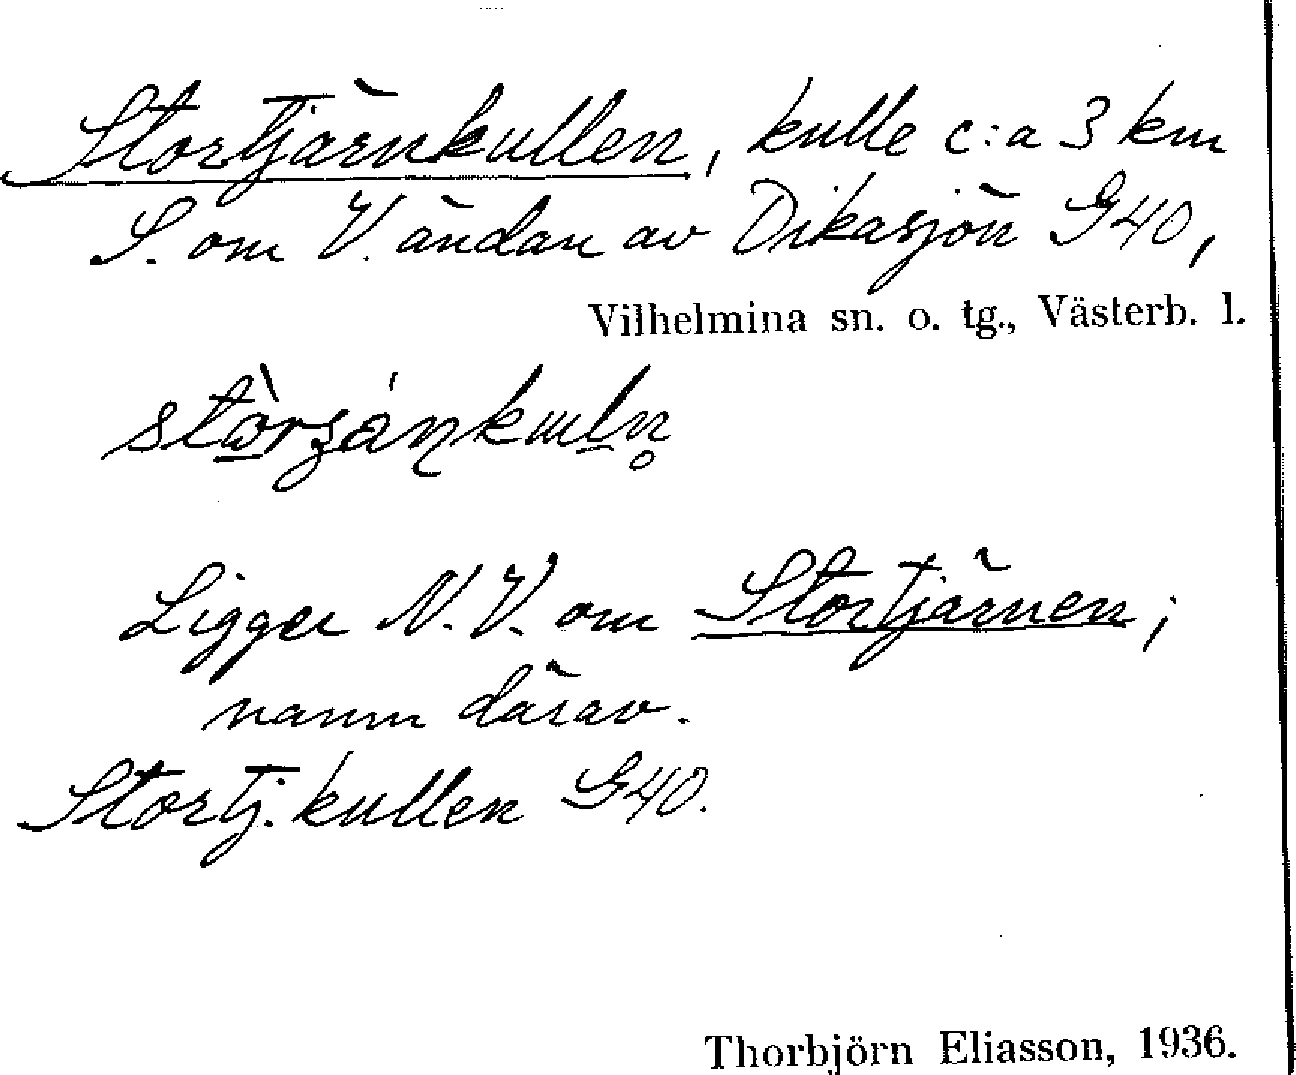 Stortjärnkullen, kulle c:a 3 km
S. om V. ändan av Dikasjön G40,
Vilhelmina sn. o. tg., Västerb. l.
Ligger N.V. om Stortjärnen;
namn därav.
Stortj.kullen G40.
Thorbjörn Eliasson, 1936.